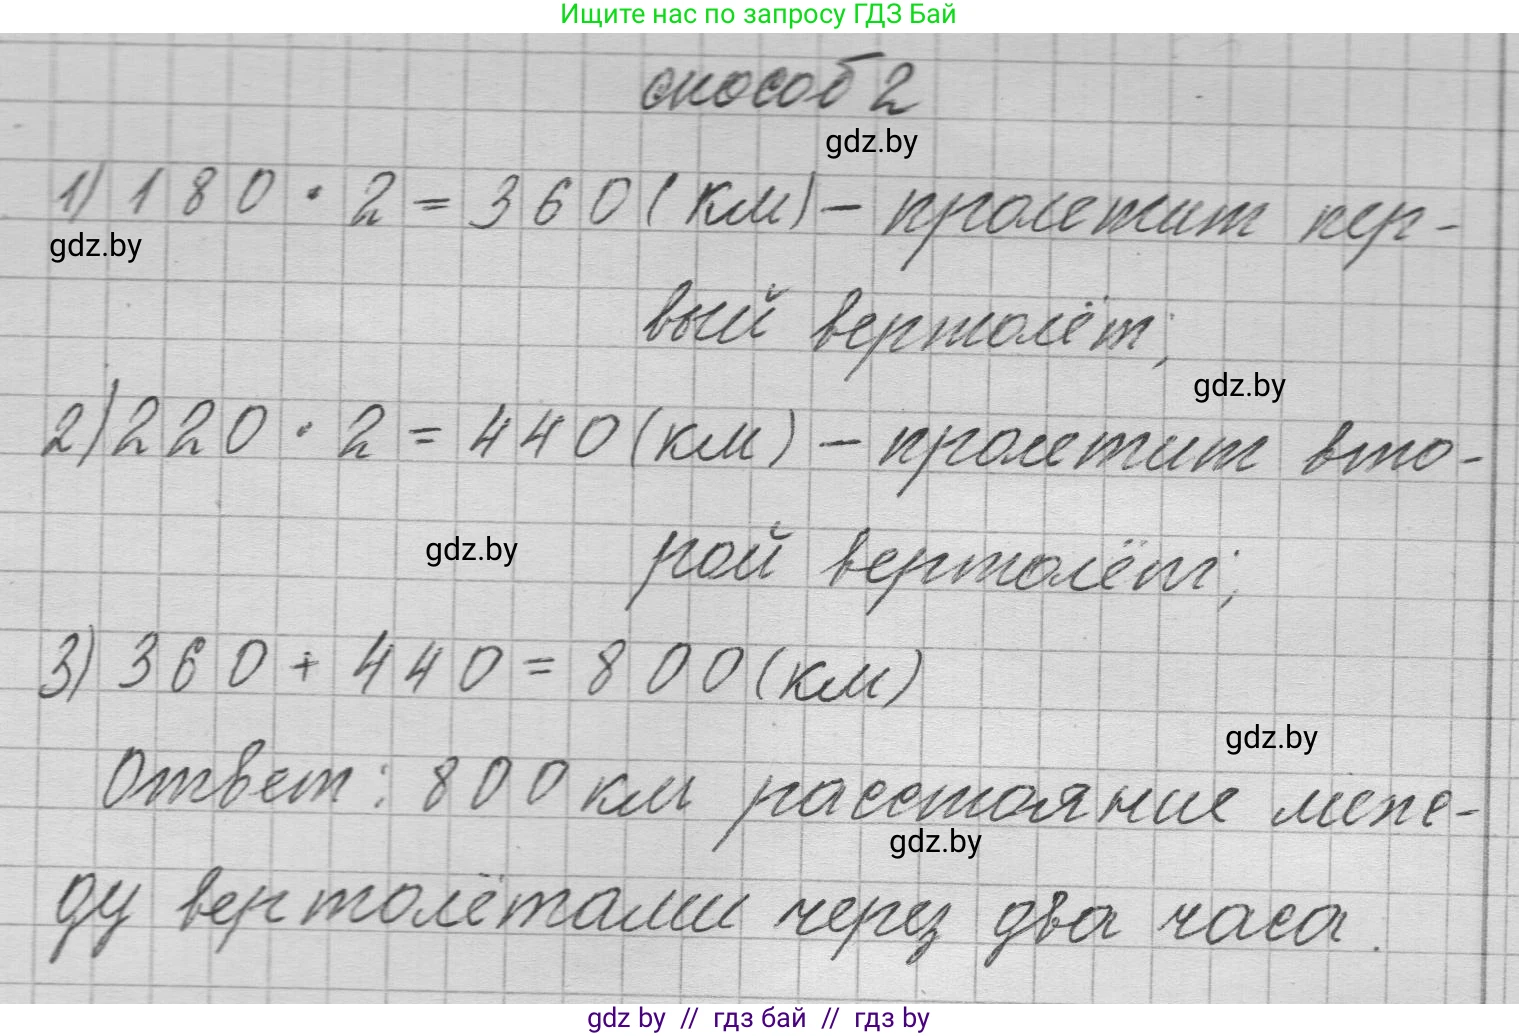 Ищите нас по запросу ГДЗ Бай
способ 2
gdz.by
1) 180 · 2 = 360 (км) – пролетит пер-
gdz.by
вый вертолёт;
gdz.by
2) 220 · 2 = 440 (км) – пролетит вто-
gdz.by
рой вертолёт;
3) 360 + 440 = 800 (км)
gdz.by
Ответ: 800 км расстояние меж-
gdz.by
ду вертолётами через два часа.
gdz by // гдз бай // гдз by